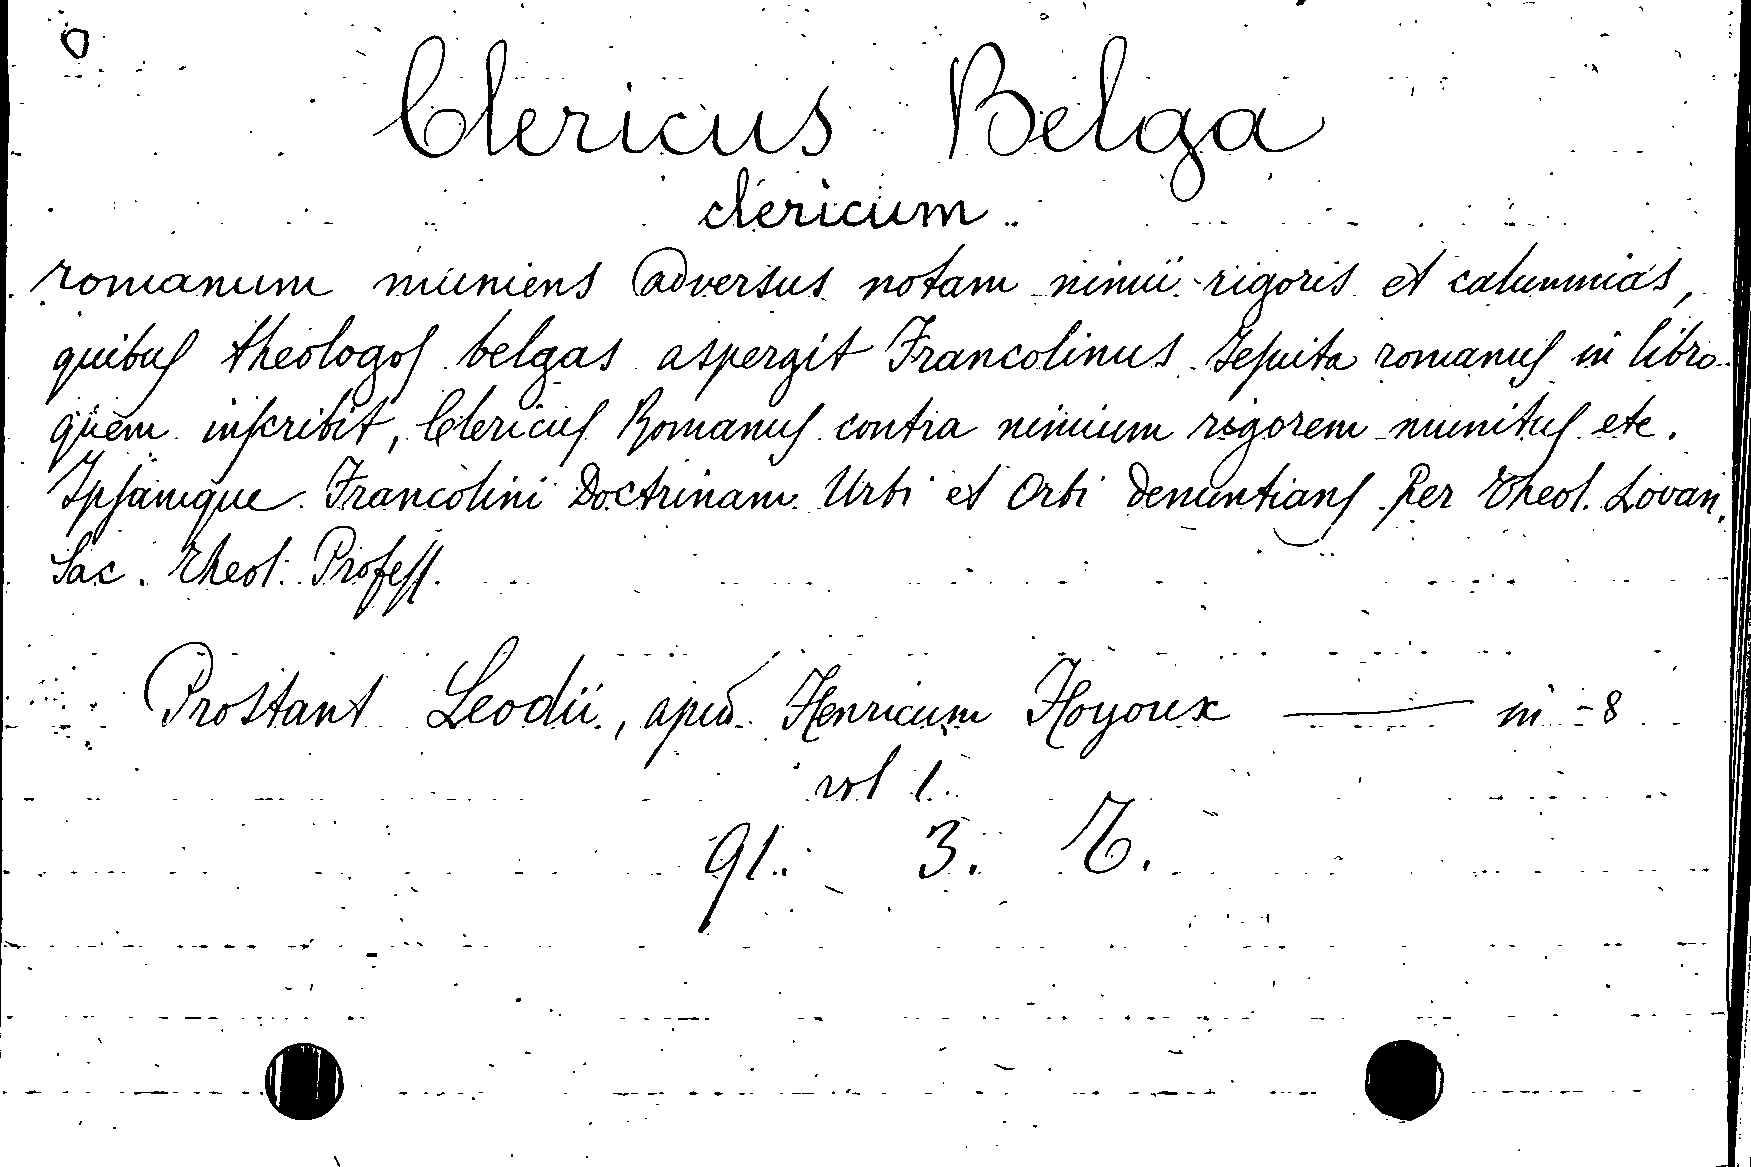 O
Clericus Belga
clericum
romanum muniens adversus notam nimii rigoris et calumnias,
quibus theologos belgas aspergit Francolinus Jesuita romanus in libro
quem inscribit, Clericus Romanus contra nimium rigorem munitus etc.
Ipsamque Francolini Doctrinam Urbi et Orbi denuntians Per Theol. Lovan.
Sac. Theol. Profess.
Prostant Leodii, apud Henricum Hoyoux — in-8
vol 1.
91. 3.